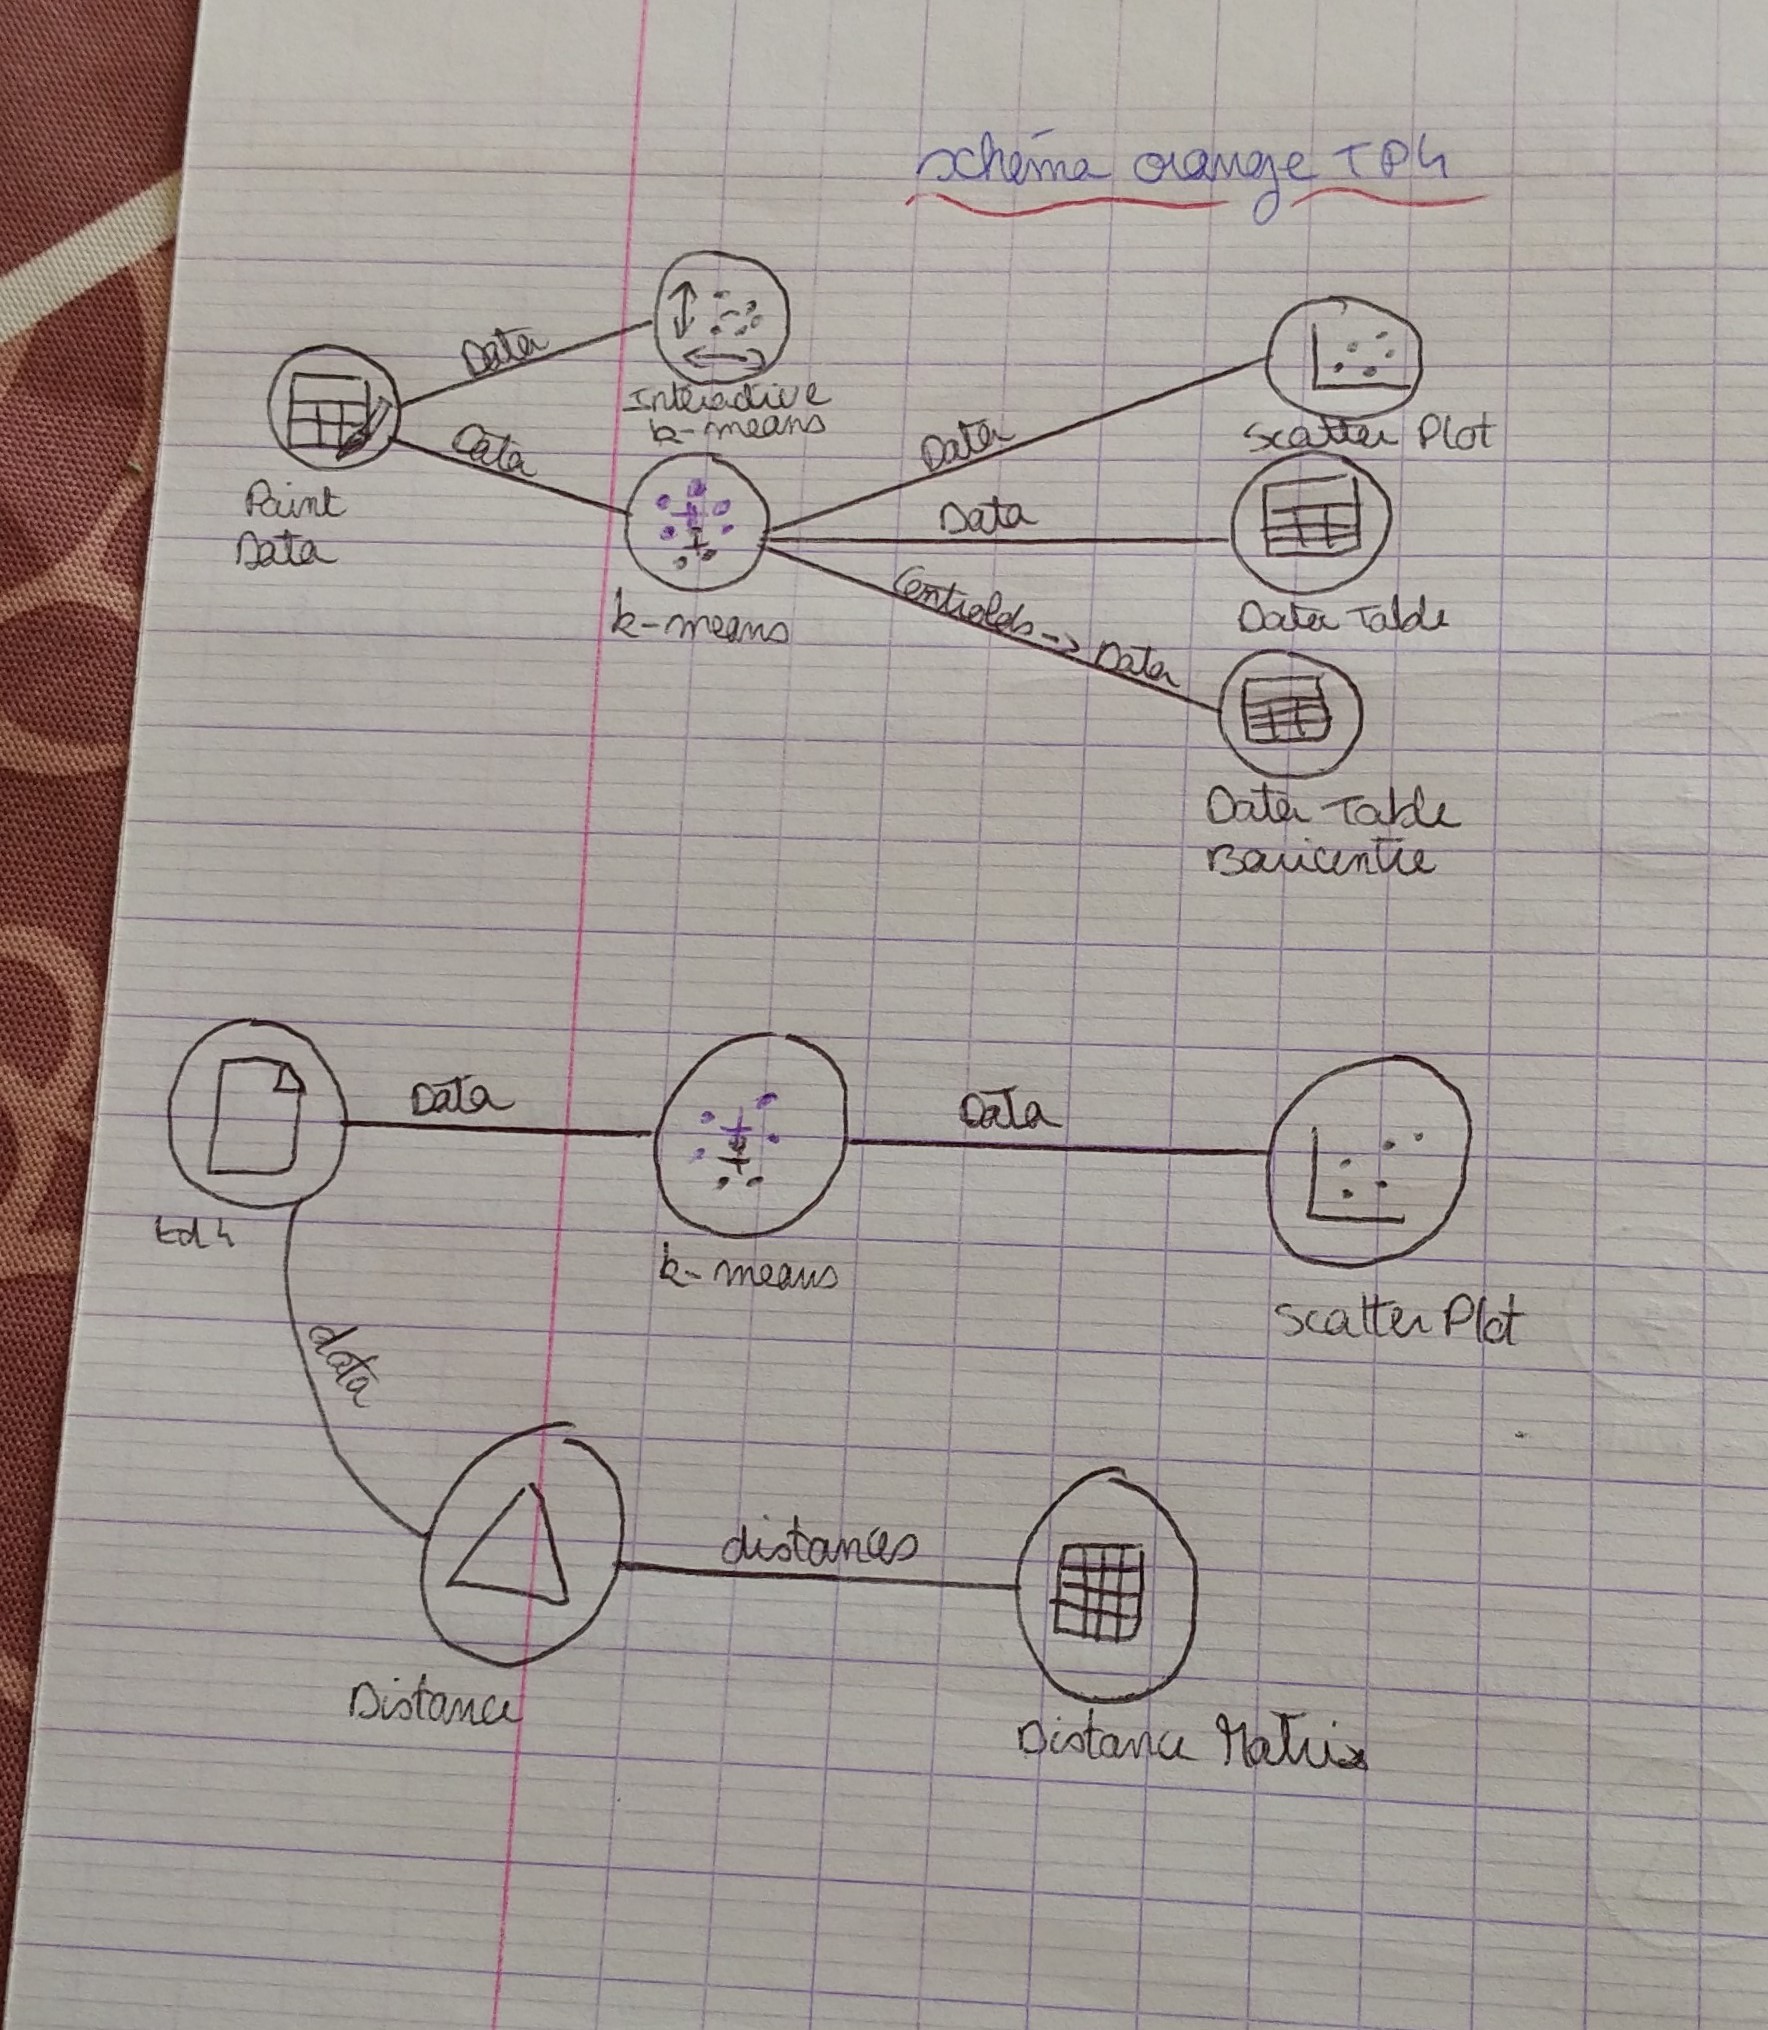 schéma orange TP4
Data
Interactive
k-means
Data
Paint
Data
k-means
Data
Scatter Plot
Data
Data Table
Centroids -> Data
Data Table
Baricentre
Data
Data
td 4
k-means
Scatter Plot
data
distances
Distance
Distance Matrix